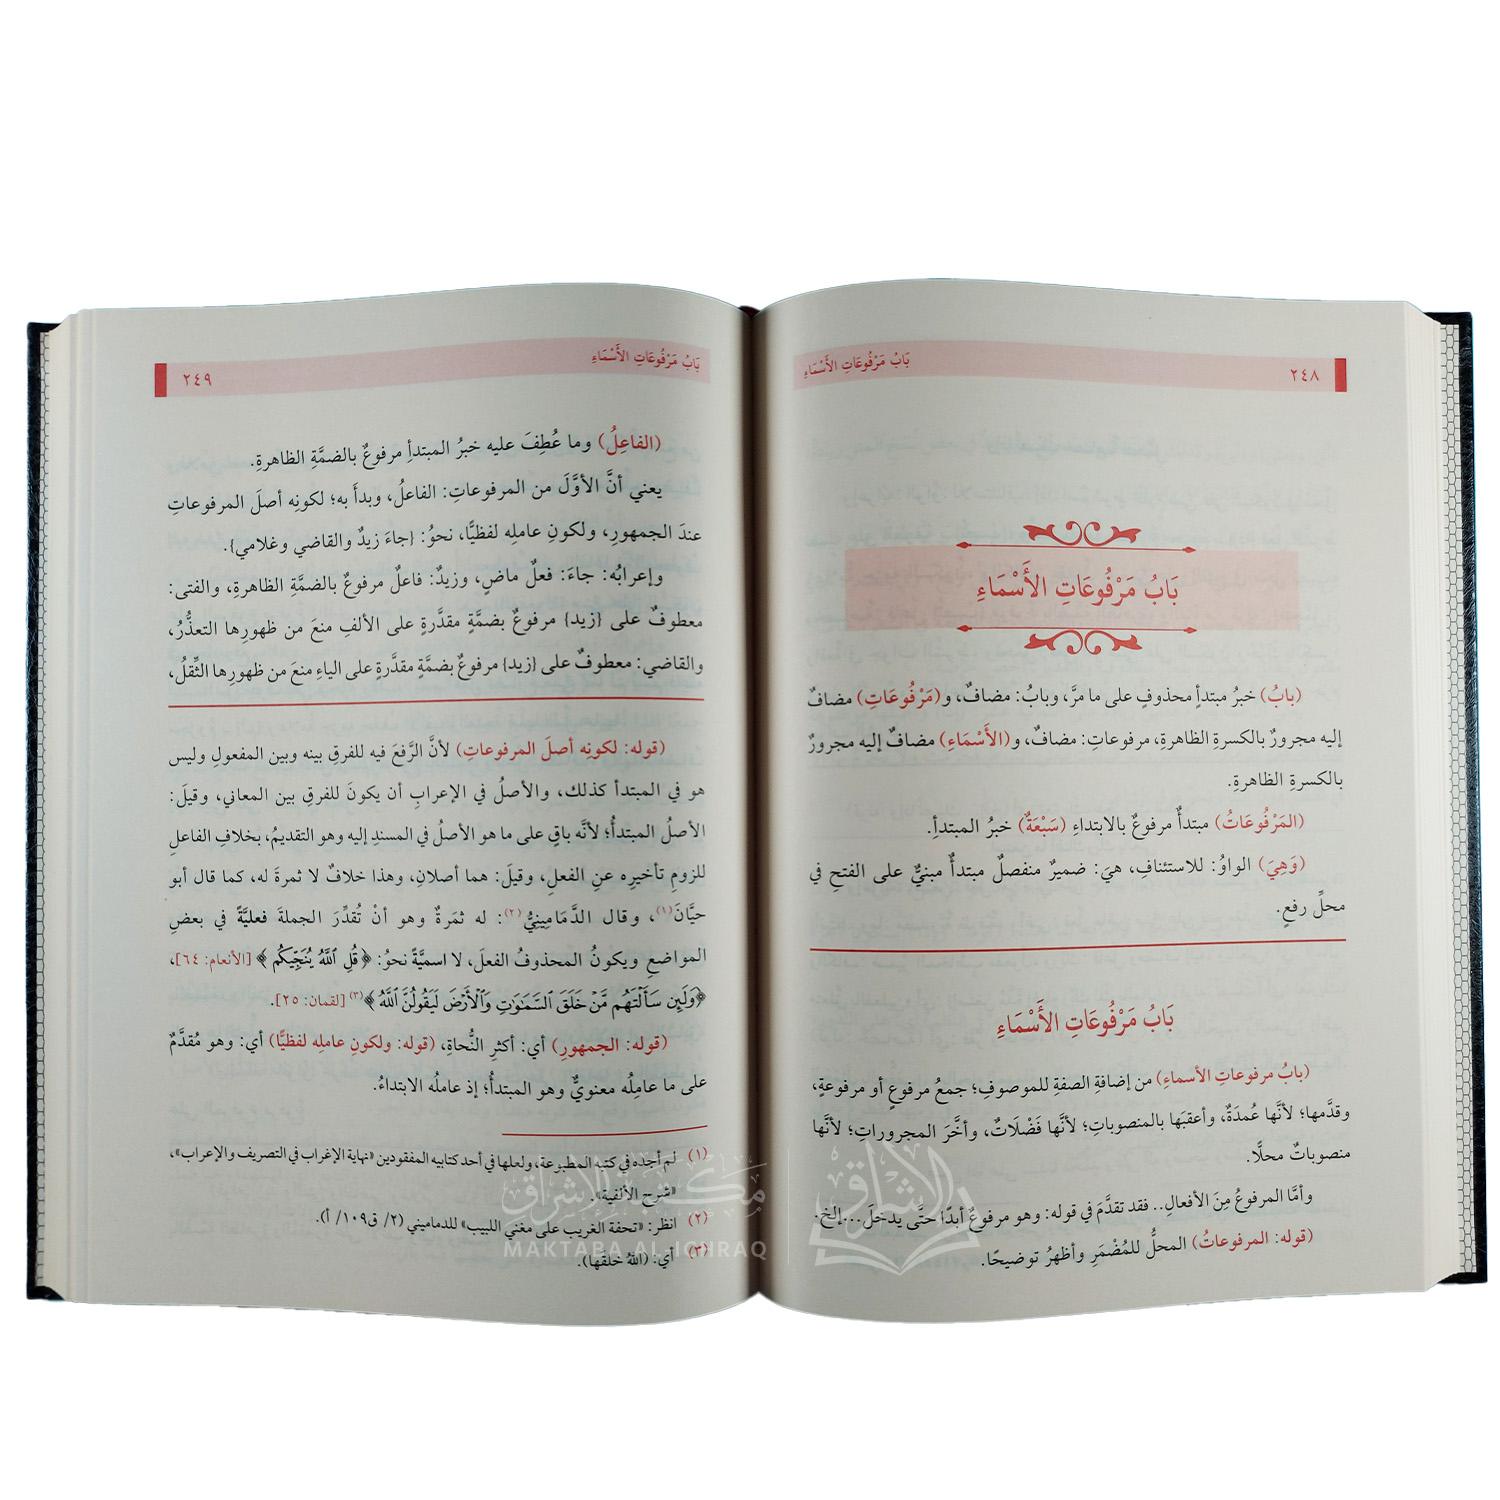 ٢٤٨
بَابُ مَرْفُوعَاتِ الأَسْمَاءِ
بَابُ مَرْفُوعَاتِ الأَسْمَاءِ
(بابُ) خبرُ مبتدأٍ محذوفٍ على ما مرَّ، وبابُ: مضافٌ، و(مَرْفُوعَاتِ) مضافٌ
إليه مجرورٌ بالكسرةِ الظاهرةِ، مرفوعاتِ: مضافٌ، و(الأَسْمَاءِ) مضافٌ إليه مجرورٌ
بالكسرةِ الظاهرةِ.
(المَرْفُوعَاتُ) مبتدأٌ مرفوعٌ بالابتداءِ (سَبْعَةٌ) خبرُ المبتدأِ.
(وَهِيَ) الواوُ: للاستئنافِ، هيَ: ضميرٌ منفصلٌ مبتدأٌ مبنيٌّ على الفتحِ في
محلِّ رفعٍ.
بَابُ مَرْفُوعَاتِ الأَسْمَاءِ
(بابُ مرفوعاتِ الأسماءِ) من إضافةِ الصفةِ للموصوفِ؛ جمعُ مرفوعٍ أو مرفوعةٍ،
وقدَّمها؛ لأنَّها عُمدَةٌ، وأعقبَها بالمنصوباتِ؛ لأنَّها فَضْلَاتٌ، وأخَّرَ المجروراتِ؛ لأنَّها
منصوباتٌ محلًّا.
وأمَّا المرفوعُ مِنَ الأفعالِ.. فقد تقدَّمَ في قوله: وهو مرفوعٌ أبدًا حتَّى يدخلَ...إلخ.
(قوله: المرفوعاتُ) المحلُّ للمُضْمَرِ وأظهرُ توضيحًا.
بَابُ مَرْفُوعَاتِ الأَسْمَاءِ
٢٤٩
(الفاعِلُ) وما عُطِفَ عليه خبرُ المبتدأِ مرفوعٌ بالضمَّةِ الظاهرةِ.
يعني أنَّ الأوَّلَ من المرفوعاتِ: الفاعلُ، وبدأَ به؛ لكونِه أصلَ المرفوعاتِ
عندَ الجمهورِ، ولكونِ عاملِه لفظيًّا، نحوُ: {جاءَ زيدٌ والقاضي وغلامي}.
وإعرابُه: جاءَ: فعلٌ ماضٍ، وزيدٌ: فاعلٌ مرفوعٌ بالضمَّةِ الظاهرةِ، والفتى:
معطوفٌ على {زيد} مرفوعٌ بضمَّةٍ مقدَّرةٍ على الألفِ منعَ من ظهورِها التعذُّرُ،
والقاضي: معطوفٌ على {زيد} مرفوعٌ بضمَّةٍ مقدَّرةٍ على الياءِ منعَ من ظهورِها الثِّقلُ،
(قوله: لكونِه أصلَ المرفوعاتِ) لأنَّ الرَّفعَ فيه للفرقِ بينه وبين المفعولِ وليس
هو في المبتدأ كذلك، والأصلُ في الإعرابِ أن يكونَ للفرقِ بين المعاني، وقيلَ:
الأصلُ المبتدأُ؛ لأنَّه باقٍ على ما هو الأصلُ في المسندِ إليه وهو التقديمُ، بخلافِ الفاعلِ
للزومِ تأخيرِه عنِ الفعلِ، وقيلَ: هما أصلان، وهذا خلافٌ لا ثمرةَ له، كما قال أبو
حيَّان(١)، وقال الدَّمَامِينِيُّ(٢): له ثمَرةٌ وهو أنْ تُقدَّرَ الجملةَ فعليَّةً في بعضِ
المواضعِ ويكونُ المحذوفُ الفعلَ، لا اسميَّةً نحوُ: ﴿قُلِ ٱللَّهُ يُنَجِّيكُم﴾ [الأنعام: ٦٤]،
﴿وَلَئِن سَأَلْتَهُم مَّنْ خَلَقَ ٱلسَّمَٰوَٰتِ وَٱلْأَرْضَ لَيَقُولُنَّ ٱللَّهُ﴾(٣) [لقمان: ٢٥].
(قوله: الجمهورِ) أي: أكثرِ النُّحاةِ، (قوله: ولكونِ عاملِه لفظيًّا) أي: وهو مُقدَّمٌ
على ما عاملُه معنويٌّ وهو المبتدأُ؛ إذ عاملُه الابتداءُ.
(١) لم أجده في كتبه المطبوعة، ولعلها في أحد كتابيه المفقودين «نهاية الإغراب في التصريف والإعراب»،
«شرح الألفية».
(٢) انظر: «تحفة الغريب على مغني اللبيب» للدماميني (٢/ ق١٠٩/ أ).
(٣) أي: (اللهُ خلقَها).
مكتبة الإشراق
MAKTABA AL ICHRAQ
الإشراق